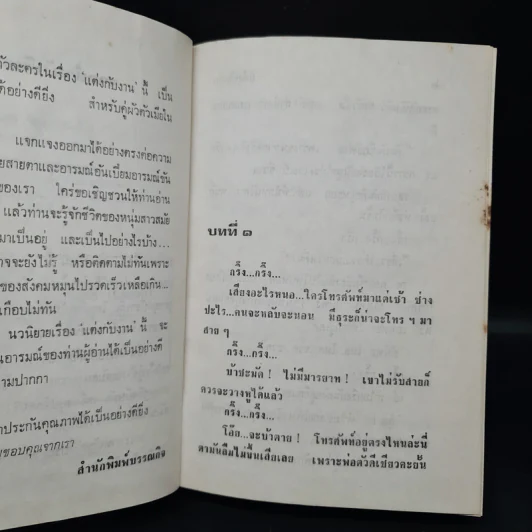 ตัวละครในเรื่อง 'แต่งกับงาน' นี้ เป็น
ด้อย่างดียิ่ง สำหรับคู่ผัวตัวเมียใน
แจกแจงออกมาได้อย่างตรงต่อความ
ยสายตาและอารมณ์อันเปี่ยมอารมณ์ขัน
ของเรา ใคร่ขอเชิญชวนให้ท่านอ่าน
แล้วท่านจะรู้จักชีวิตของหนุ่มสาวสมัย
มาเป็นอยู่ และเป็นไปอย่างไรบ้าง...
าจจะยังไม่รู้ หรือติดตามไม่ทันเพราะ
ของสังคมหมุนไปรวดเร็วเหลือเกิน...
เกือบไม่ทัน
นวนิยายเรื่อง 'แต่งกับงาน' นี้ จะ
นอารมณ์ของท่านผู้อ่านได้เป็นอย่างดี
ามปากกา
าประกันคุณภาพได้เป็นอย่างดียิ่ง
ขอบคุณจากเรา
สำนักพิมพ์บรรณกิจ
บทที่ ๑
กริ๊ง...กริ๊ง...
เสียงอะไรหนอ...ใครโทรศัพท์มาแต่เช้า ช่าง
ปะไร...คนจะหลับจะนอน มีธุระก็น่าจะโทร ฯ มา
สาย ๆ
กริ๊ง...กริ๊ง...
บ้าชะมัด ! ไม่มีมารยาท ! เขาไม่รับสายก็
ควรจะวางหูได้แล้ว
กริ๊ง...กริ๊ง...
โอ๊ย...จะบ้าตาย ! โทรศัพท์อยู่ตรงไหนล่ะนี่
ตามันลืมไม่ขึ้นเสียเลย เพราะพ่อตัวดีเชียวละยั้น